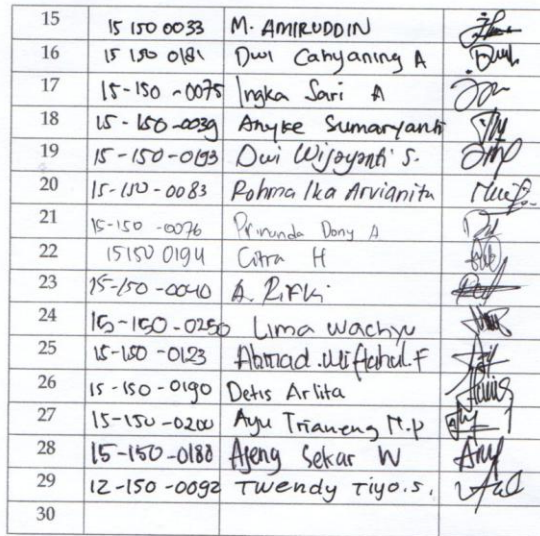 15 15 150 0033 M. AMIRUDDIN
16 15 150 0181 Dwi Cahyaning A
17 15-150-0075 Ingka Sari A
18 15-150-0039 Anyke Sumaryanti
19 15-150-0193 Dwi Wijayanti S.
20 15-150-0083 Rohma Ika Arvianita
21 15-150-0076 Prinanda Dony A
22 15150 0194 Citra H
23 15-150-0040 A. RIFKI
24 15-150-0250 Lima Wachyu
25 15-150-0123 Ahmad Miftahul F
26 15-150-0190 Detis Arlita
27 15-150-0200 Ayu M.P
28 15-150-0188 Ajeng Sekar W
29 12-150-0092 Twendy Tiyo.S.
30